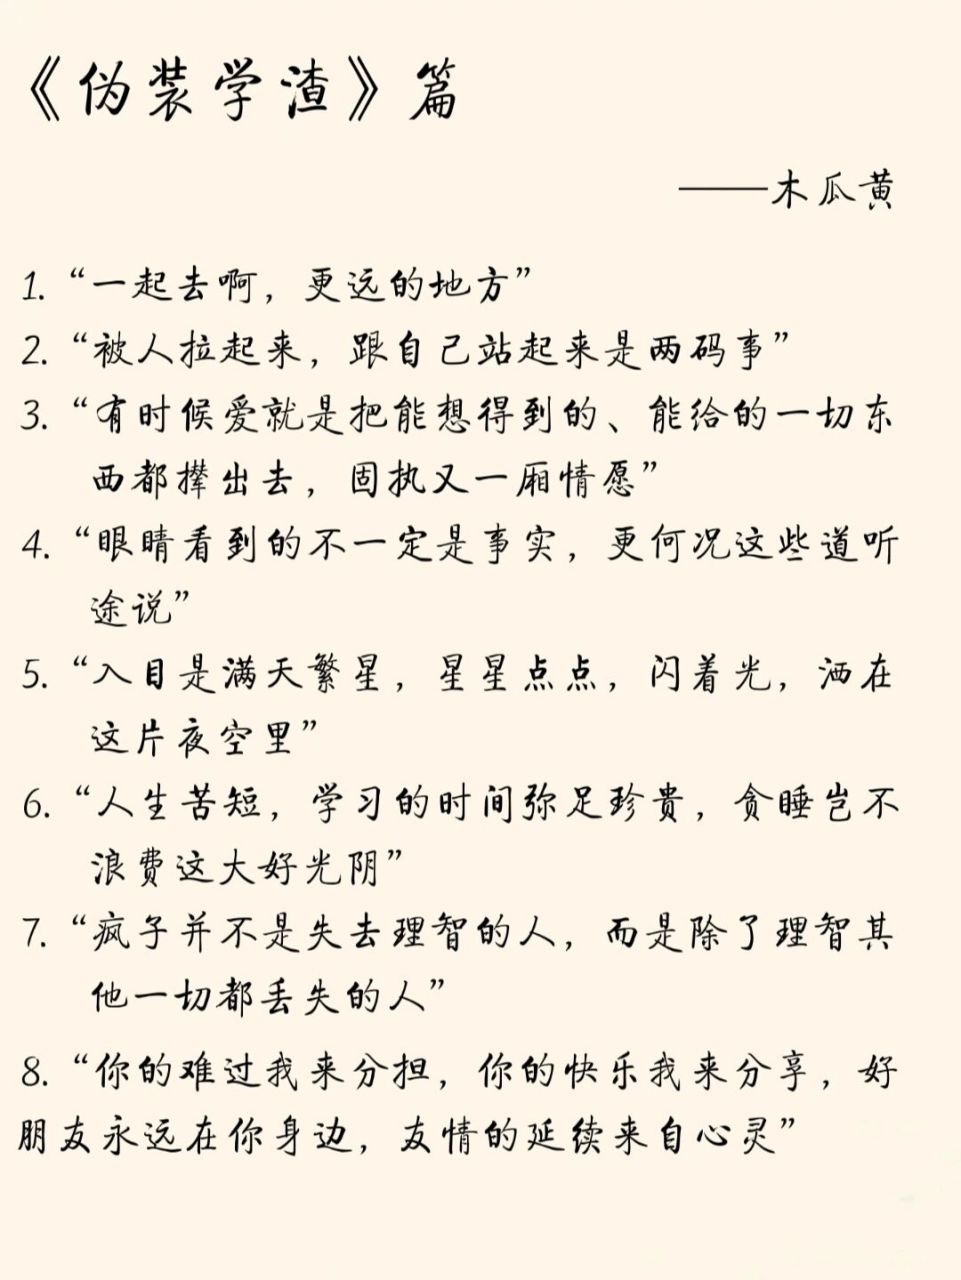 《伪装学渣》篇
——木瓜黄
1.“一起去啊，更远的地方”
2.“被人拉起来，跟自己站起来是两码事”
3.“有时候爱就是把能想得到的、能给的一切东
西都撵出去，固执又一厢情愿”
4.“眼睛看到的不一定是事实，更何况这些道听
途说”
5.“入目是满天繁星，星星点点，闪着光，洒在
这片夜空里”
6.“人生苦短，学习的时间弥足珍贵，贪睡岂不
浪费这大好光阴”
7.“疯子并不是失去理智的人，而是除了理智其
他一切都丢失的人”
8.“你的难过我来分担，你的快乐我来分享，好
朋友永远在你身边，友情的延续来自心灵”